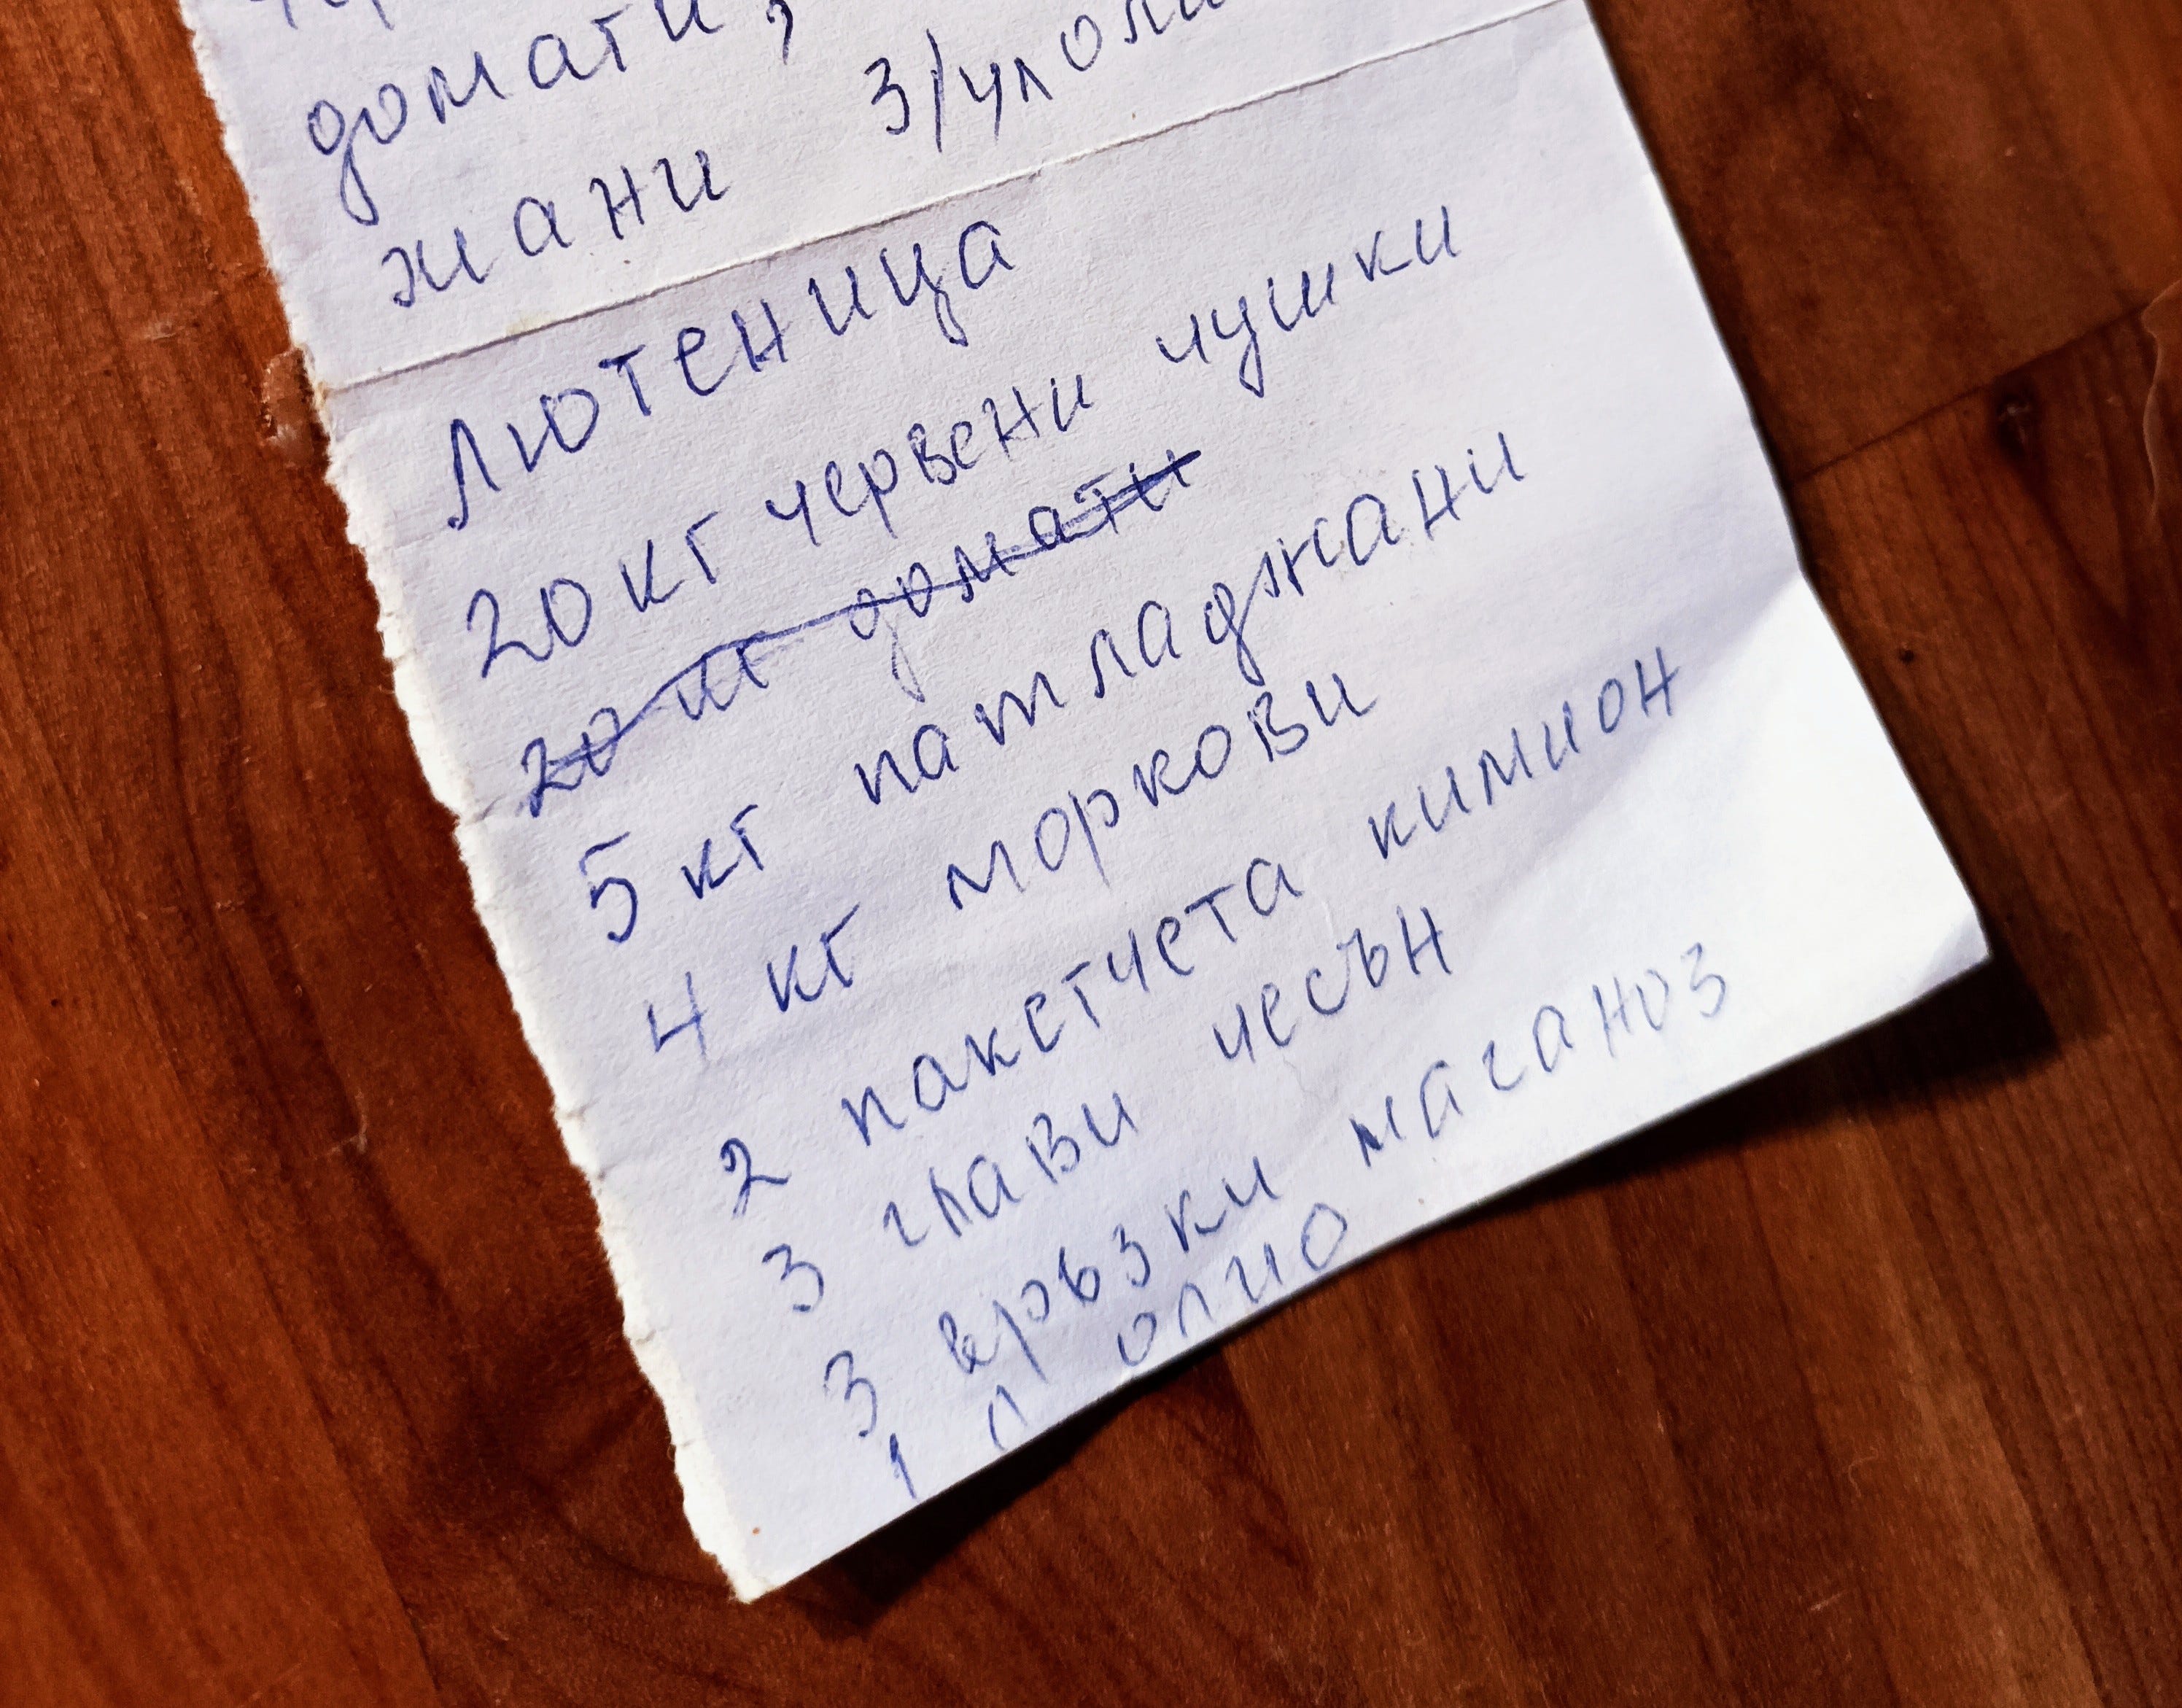 домати,
жани 3/ч
Лютеница
20 кг червени чушки
20 кг домати
5 кг патладжани
4 кг моркови
2 пакетчета кимион
3 глави чесън
3 връзки маганоз
1 л олио